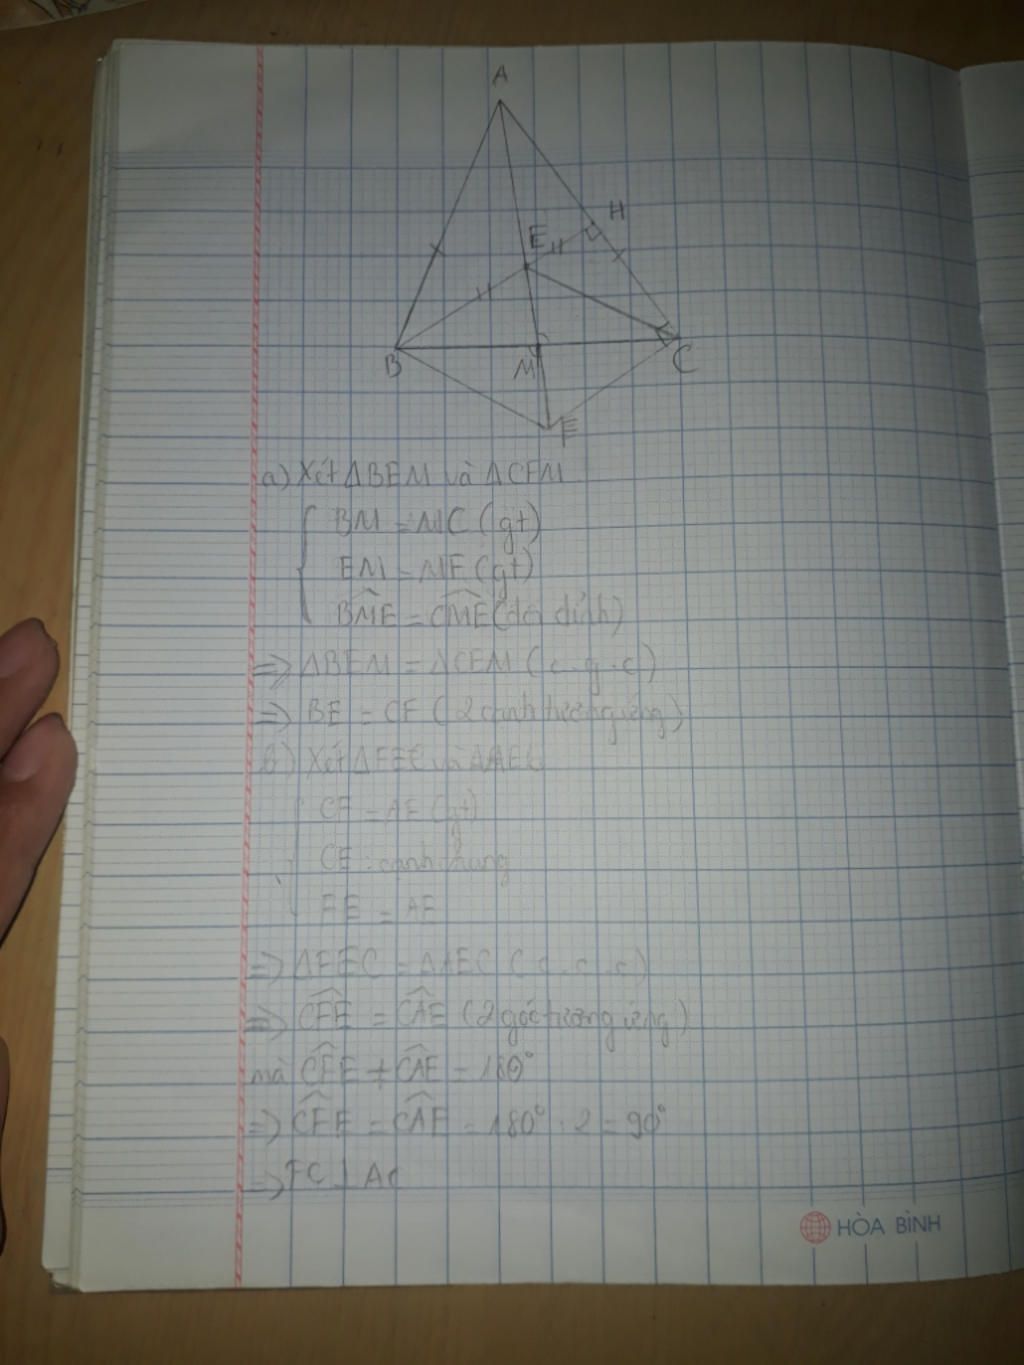 A
H
E
B
M
C
F
a) Xét ΔBEM và ΔCFM
BM = MC (gt)
EM = MF (gt)
BME = CMF (đối đỉnh)
=> ΔBEM = ΔCFM (c.g.c)
=> BE = CF (2 cạnh tương ứng)
b) Xét ΔFEC và ΔAEC
CF = AE (gt)
CE : cạnh chung
FE = AE
=> ΔFEC = ΔAEC (c.c.c)
=> CFE = CAE (2 góc tương ứng)
mà CFE + CAE = 180°
=> CFE = CAE = 180° : 2 = 90°
=> FC ⊥ AC
HÒA BÌNH